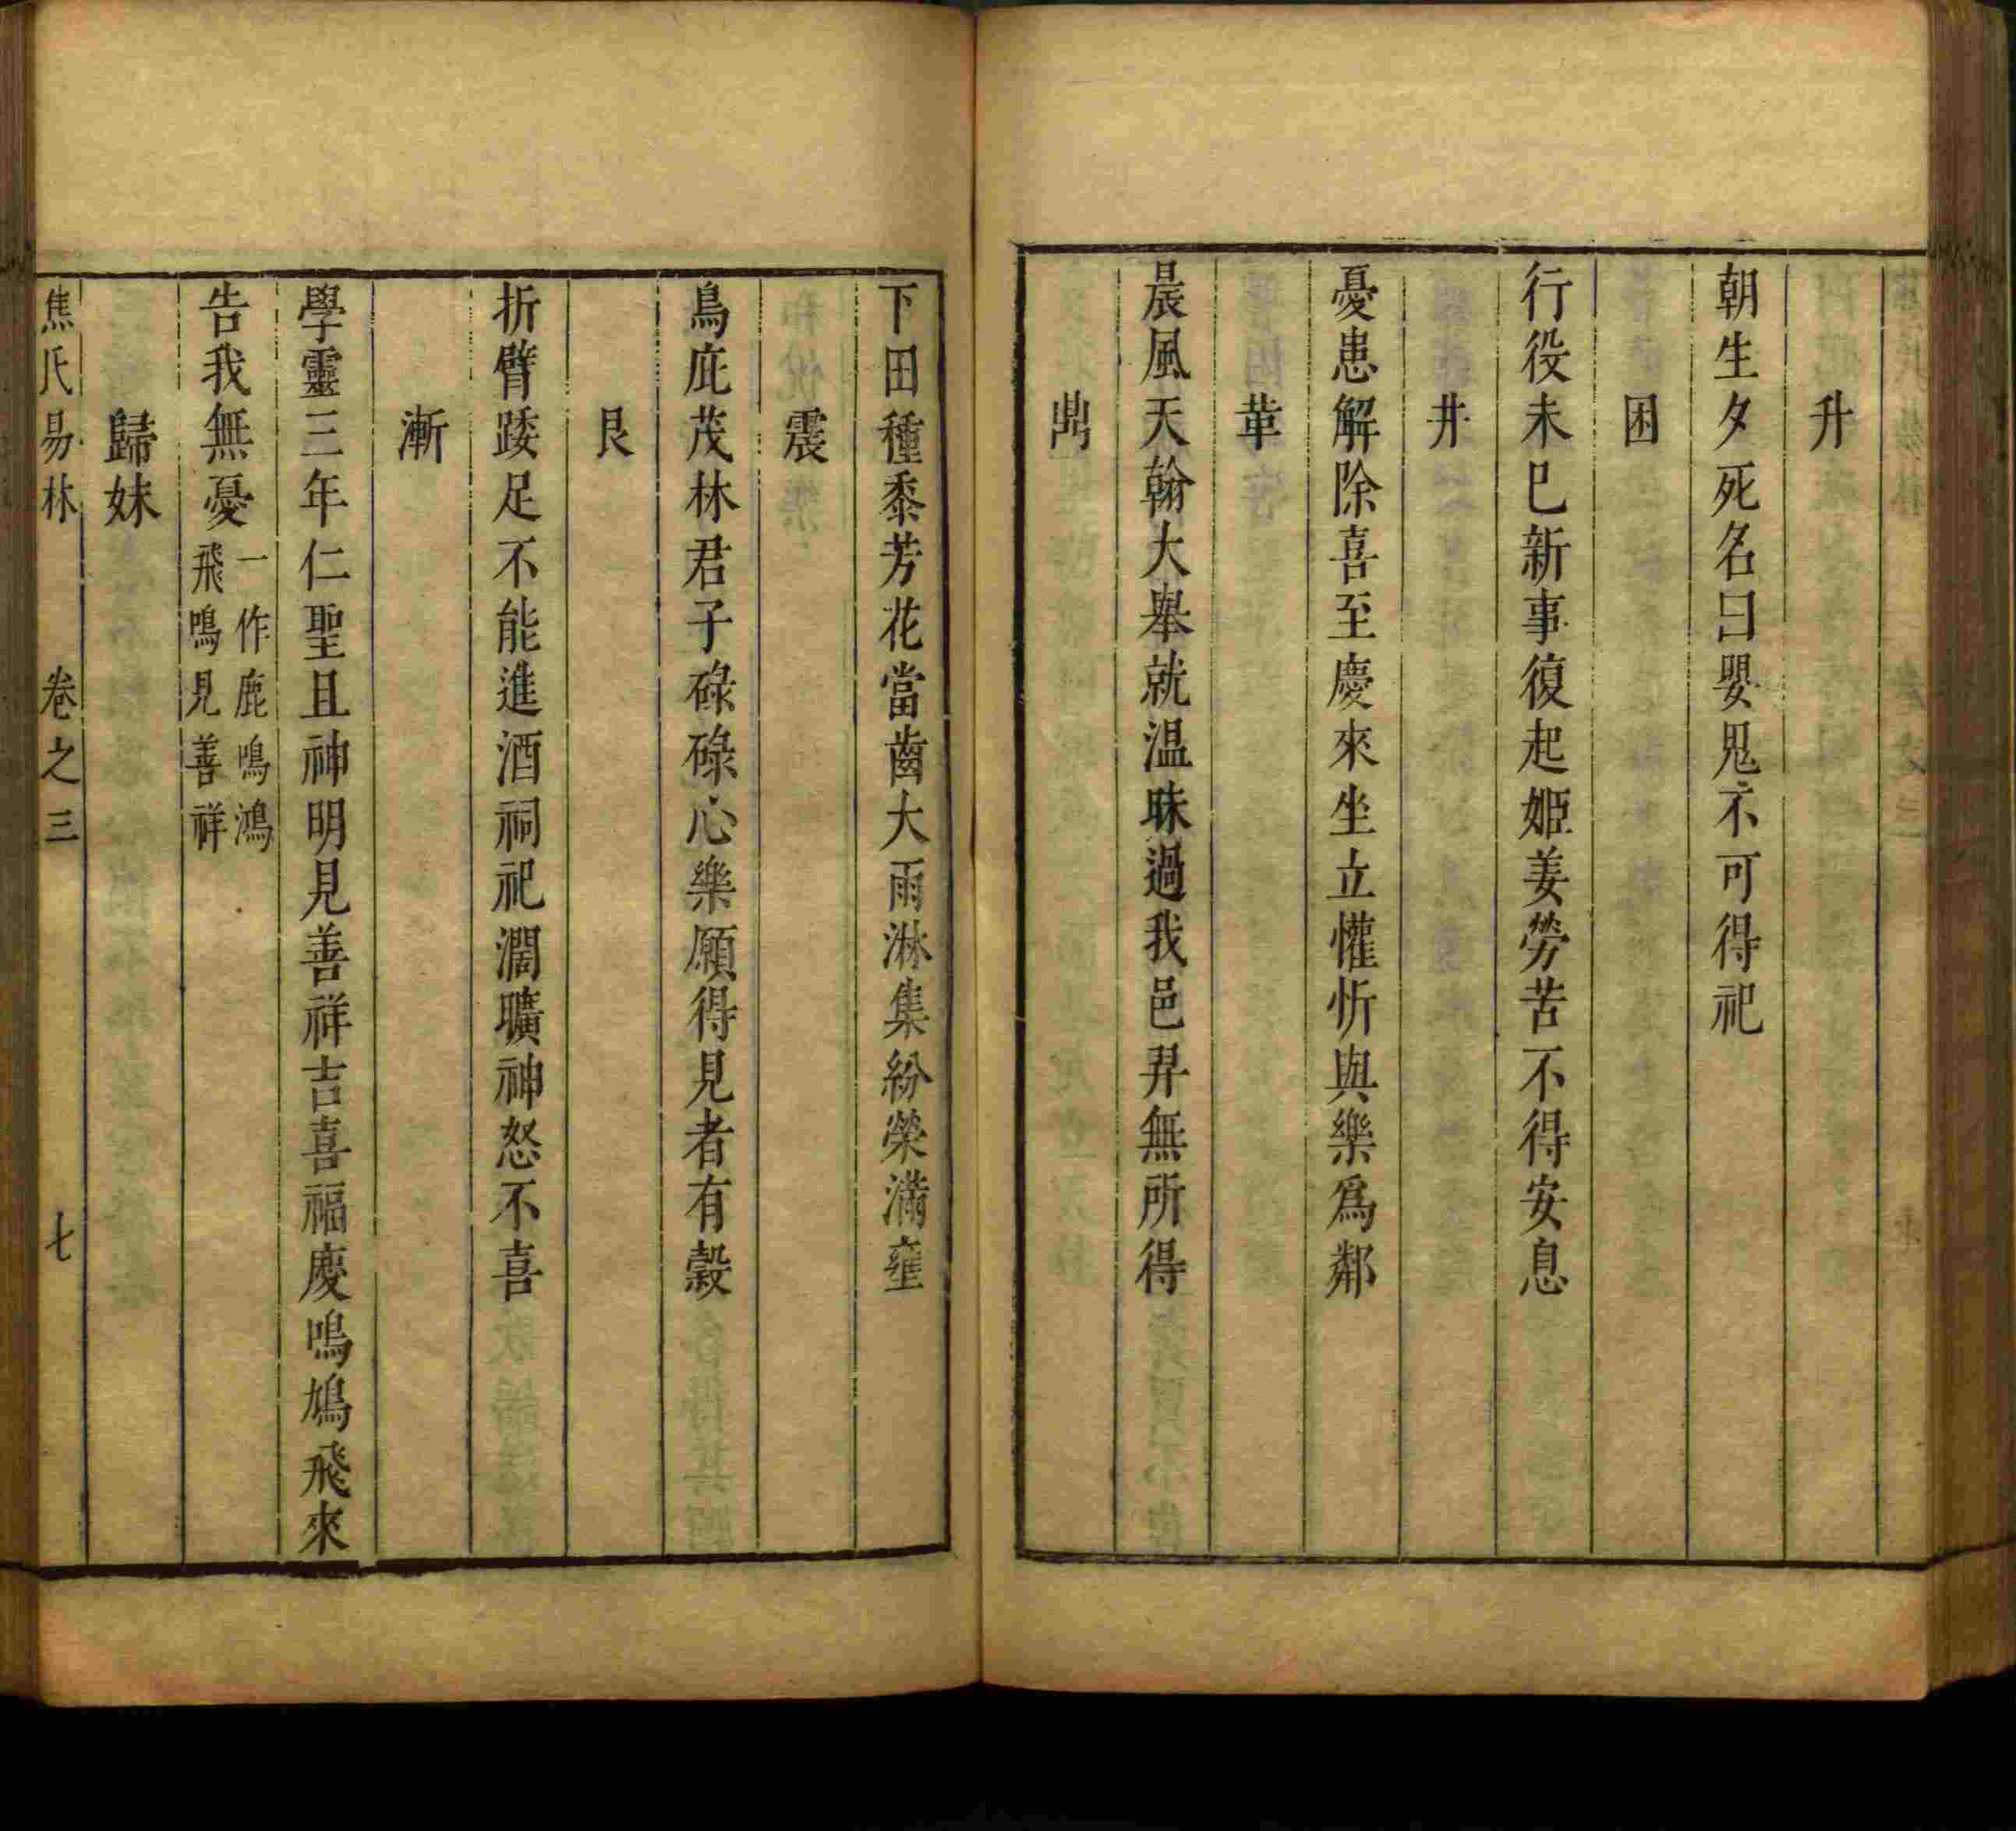 升
朝生夕死名曰嬰鬼不可得祀
困
行役未巳新事復起姬姜勞苦不得安息
井
憂患解除喜至慶來坐立懽忻與樂爲鄰
革
晨風天翰大舉就温昧過我邑羿無所得
鼎
下田種黍芳花當齒大雨淋集紛榮滿甕
震
鳥庇茂林君子碌碌心樂願得見者有穀
艮
折臂踒足不能進酒祠祀濶曠神怒不喜
漸
學靈三年仁聖且神明見善祥吉喜福慶鳴鳩飛來
告我無憂一作鹿鳴鴻飛鳴見善祥
歸妹
焦氏易林 卷之三 七